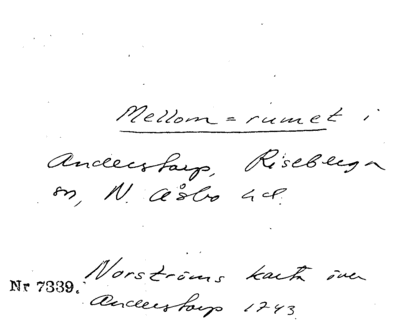 Mellom = rumet i
Anderstorp, Riseberga
sn, N. Åsbo hd.
Norströms karta över
Nr 7339.
Anderstorp 1743